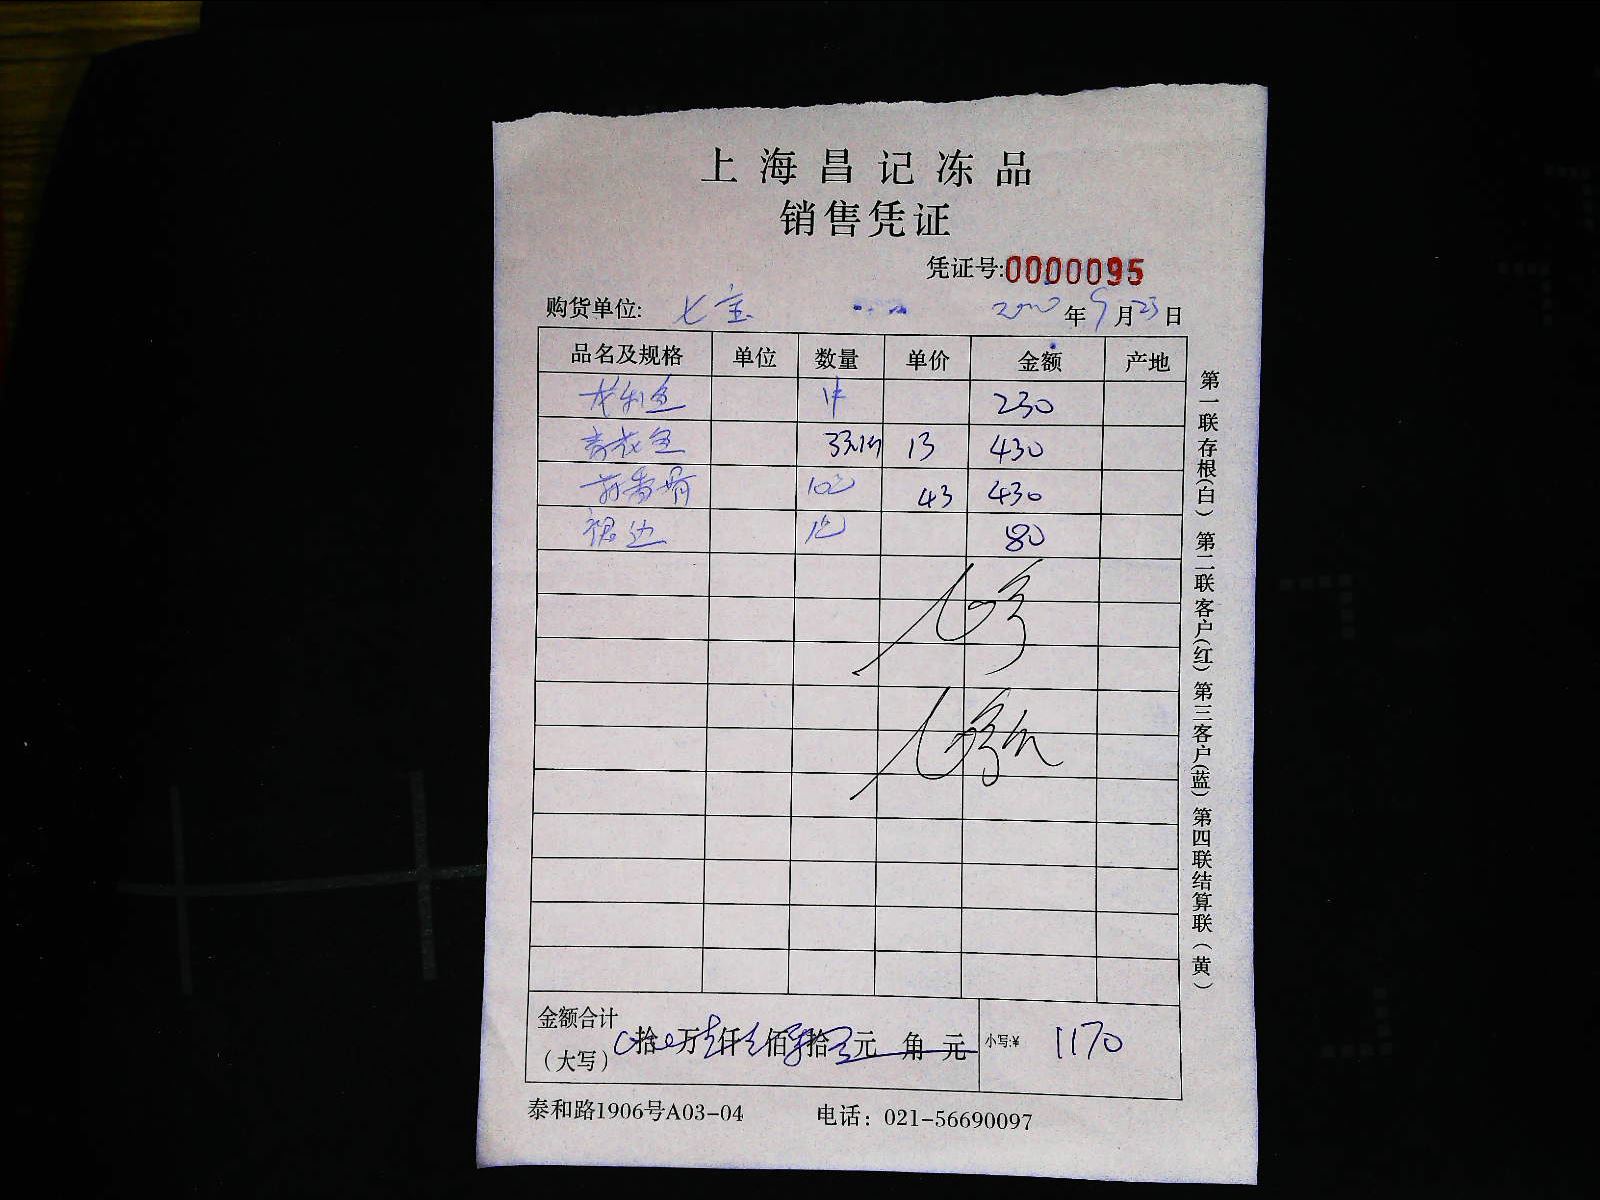 上海昌记冻品
销售凭证
凭证号:0000095
购货单位: 七宝 年 9月23日
品名及规格 单位 数量 单价 金额 产地
龙利鱼 1件 230
青衣鱼 13 430
43 430
裙边 80
金额合计
(大写) 拾 万 仟 佰 拾 元 角 元 小写:¥ 1170
泰和路1906号A03-04 电话: 021-56690097
第一联存根(白) 第二联客户(红) 第三客户(蓝) 第四联结算联(黄)